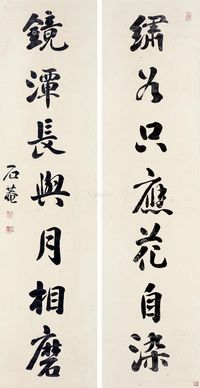 繡谷只應花自染
鏡潭長與月相磨
石菴